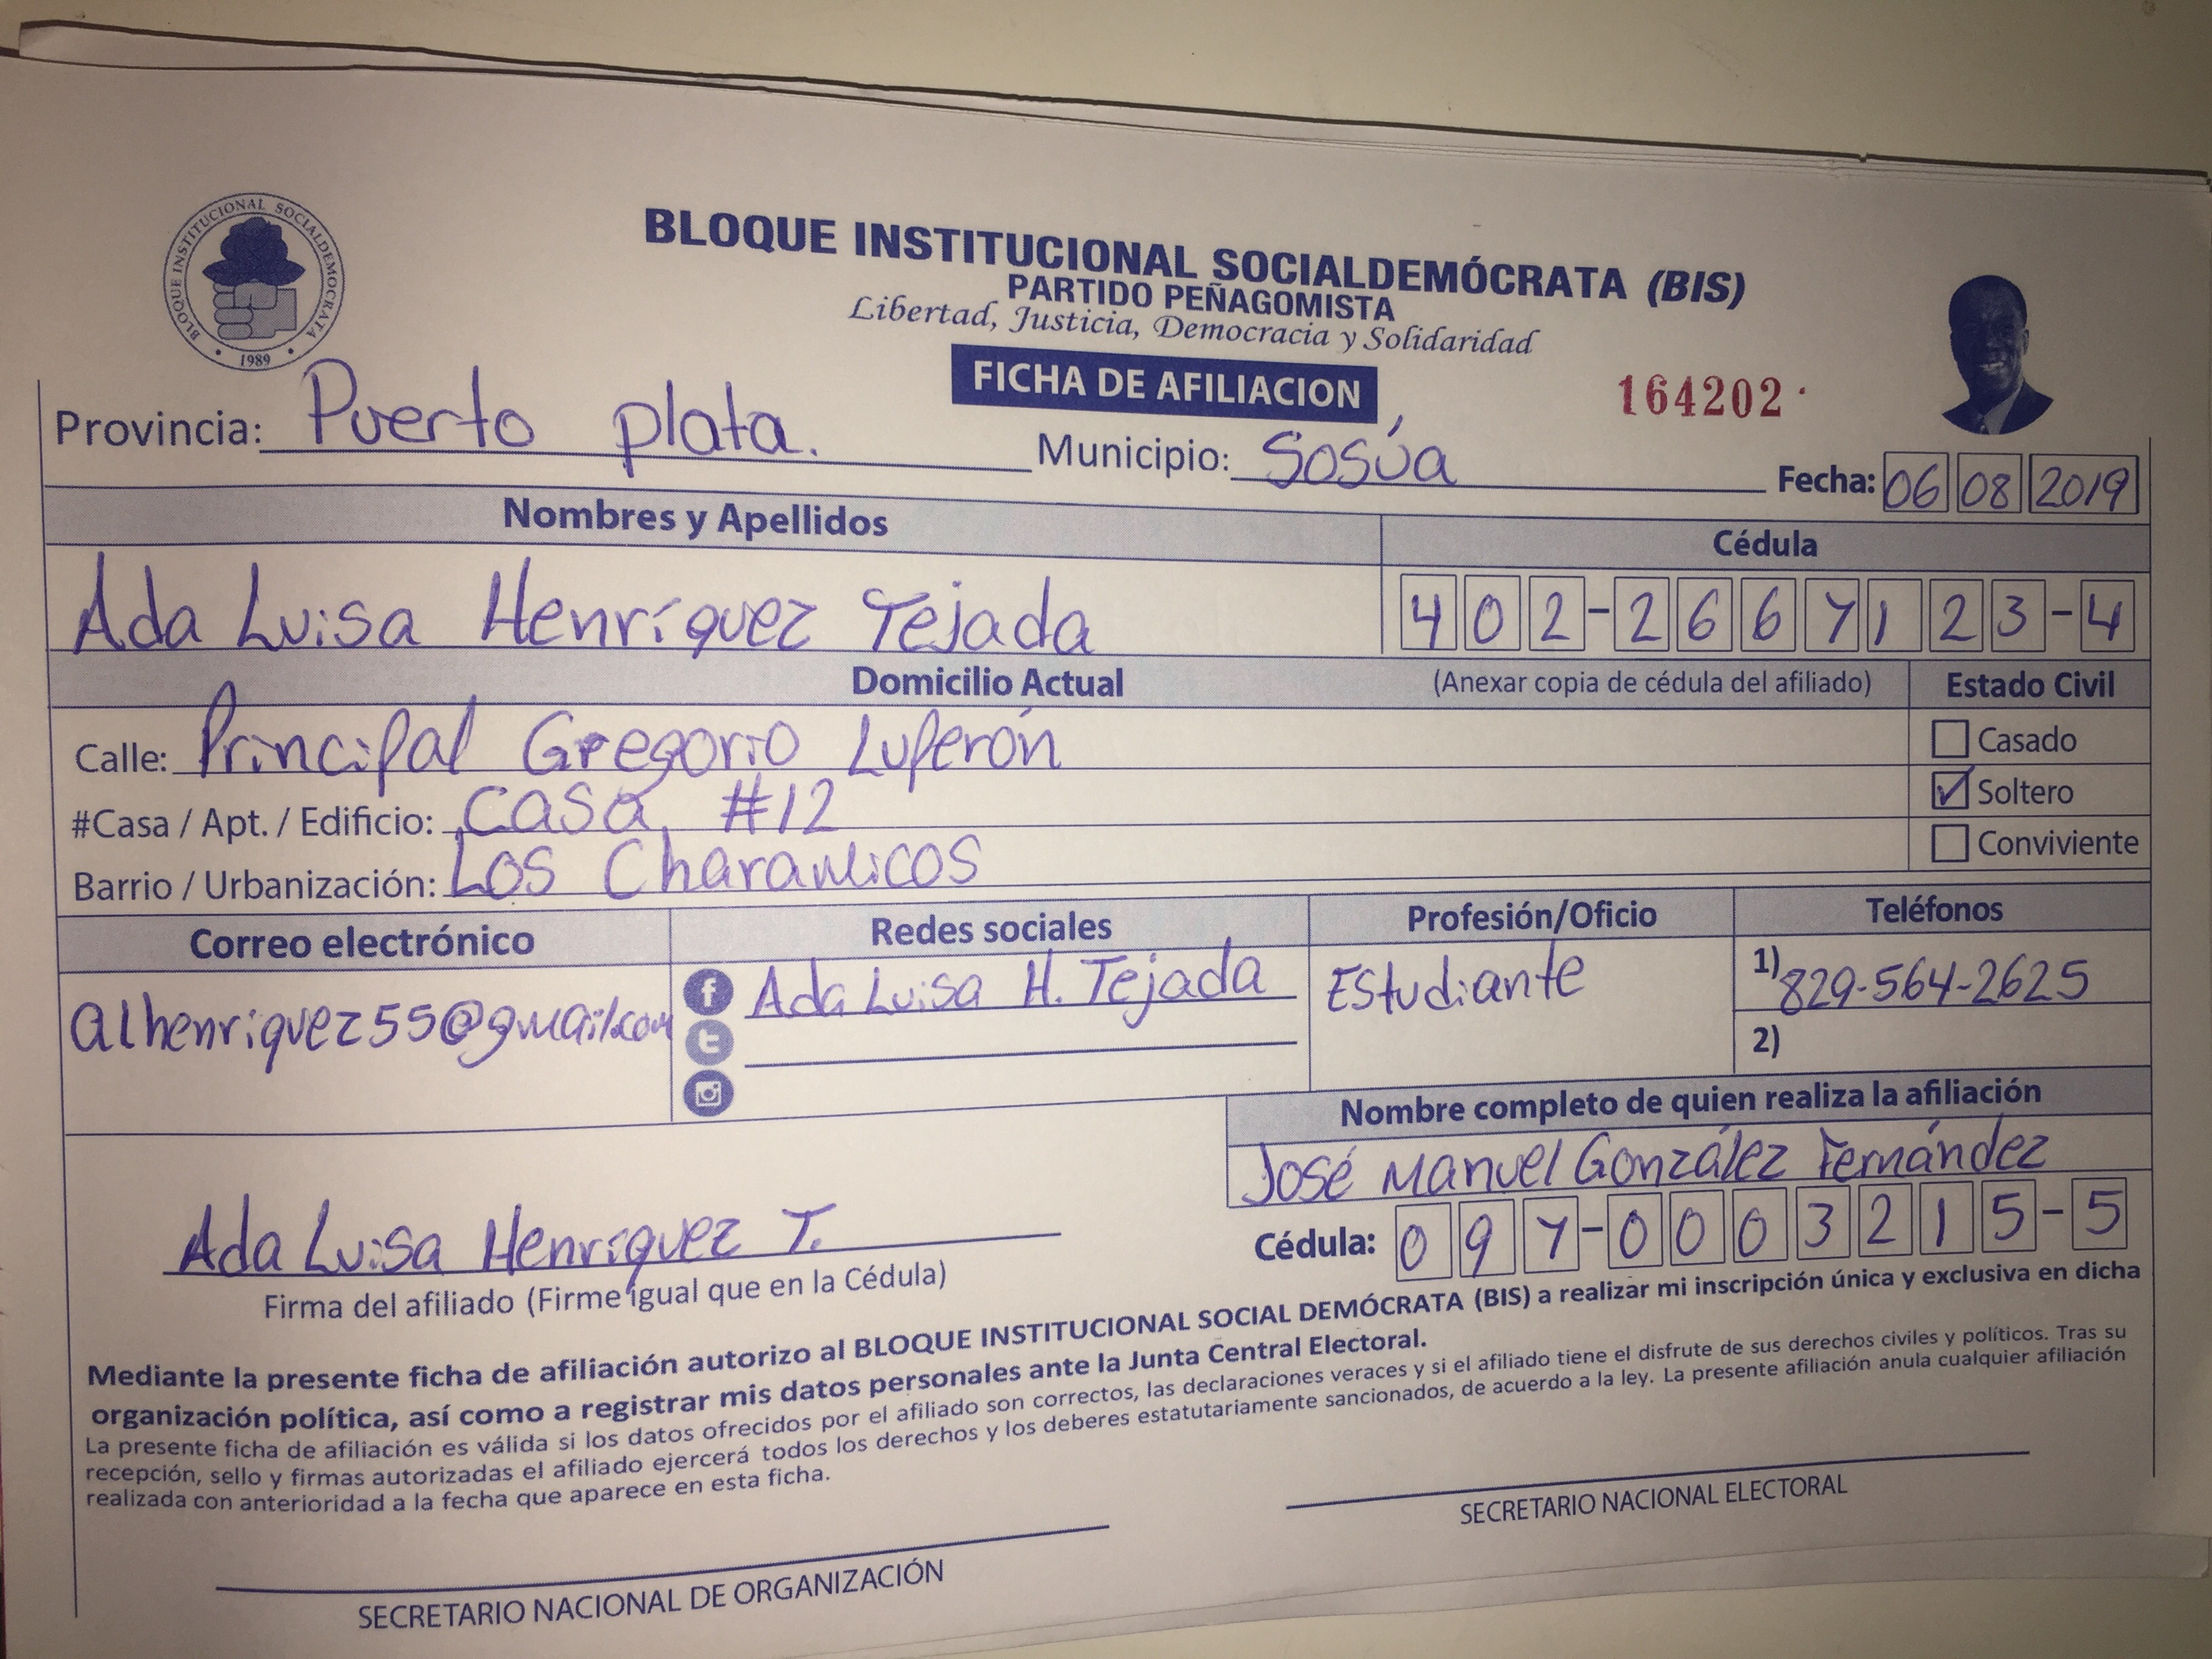 BLOQUE INSTITUCIONAL SOCIALDEMOCRATA
• 1989 •
BLOQUE INSTITUCIONAL SOCIALDEMÓCRATA (BIS)
PARTIDO PEÑAGOMISTA
Libertad, Justicia, Democracia y Solidaridad
FICHA DE AFILIACION
164202
Provincia: Puerto plata. Municipio: Sosúa Fecha: 06 08 2019
Nombres y Apellidos Cédula
Ada Luisa Henríquez Tejada 402-2667123-4
Domicilio Actual (Anexar copia de cédula del afiliado) Estado Civil
Calle: Principal Gregorio Luperón Casado
#Casa / Apt. / Edificio: casa #12 ✓ Soltero
Barrio / Urbanización: Los Charamicos Conviviente
Correo electrónico Redes sociales Profesión/Oficio Teléfonos
alhenriquez55@gmail.com Ada Luisa H. Tejada Estudiante 1) 829-564-2625
2)
Nombre completo de quien realiza la afiliación
José Manuel González Fernández
Ada Luisa Henríquez T. Cédula: 097-0003215-5
Firma del afiliado (Firme igual que en la Cédula)
Mediante la presente ficha de afiliación autorizo al BLOQUE INSTITUCIONAL SOCIAL DEMÓCRATA (BIS) a realizar mi inscripción única y exclusiva en dicha
organización política, así como a registrar mis datos personales ante la Junta Central Electoral.
La presente ficha de afiliación es válida si los datos ofrecidos por el afiliado son correctos, las declaraciones veraces y si el afiliado tiene el disfrute de sus derechos civiles y políticos. Tras su
recepción, sello y firmas autorizadas el afiliado ejercerá todos los derechos y los deberes estatutariamente sancionados, de acuerdo a la ley. La presente afiliación anula cualquier afiliación
realizada con anterioridad a la fecha que aparece en esta ficha.
SECRETARIO NACIONAL ELECTORAL
SECRETARIO NACIONAL DE ORGANIZACIÓN